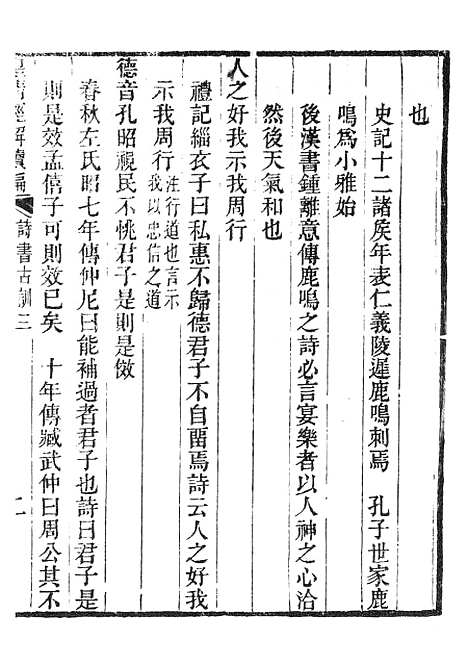 也
史記十二諸矦年表仁義陵遲鹿鳴刺焉　孔子世家鹿
鳴爲小雅始
後漢書鍾離意傳鹿鳴之詩必言宴樂者以人神之心洽
然後天氣和也
人之好我示我周行
禮記緇衣子曰私惠不歸德君子不自畱焉詩云人之好我
示我周行注行道也言示我以忠信之道
德音孔昭視民不恌君子是則是傚
春秋左氏昭七年傳仲尼曰能補過者君子也詩曰君子是
則是效孟僖子可則效已矣　十年傳臧武仲曰周公其不
皇淸經解續編　詩書古訓三　二